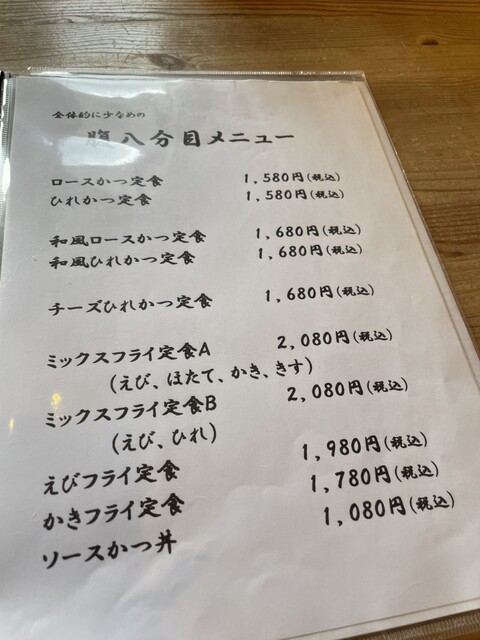 全体的に少なめの
腹八分目メニュー
ロースかつ定食 1,580円(税込)
ひれかつ定食 1,580円(税込)
和風ロースかつ定食 1,680円(税込)
和風ひれかつ定食 1,680円(税込)
チーズひれかつ定食 1,680円(税込)
ミックスフライ定食A 2,080円(税込)
(えび、ほたて、かき、きす)
ミックスフライ定食B 2,080円(税込)
(えび、ひれ)
えびフライ定食 1,980円(税込)
かきフライ定食 1,780円(税込)
ソースかつ丼 1,080円(税込)